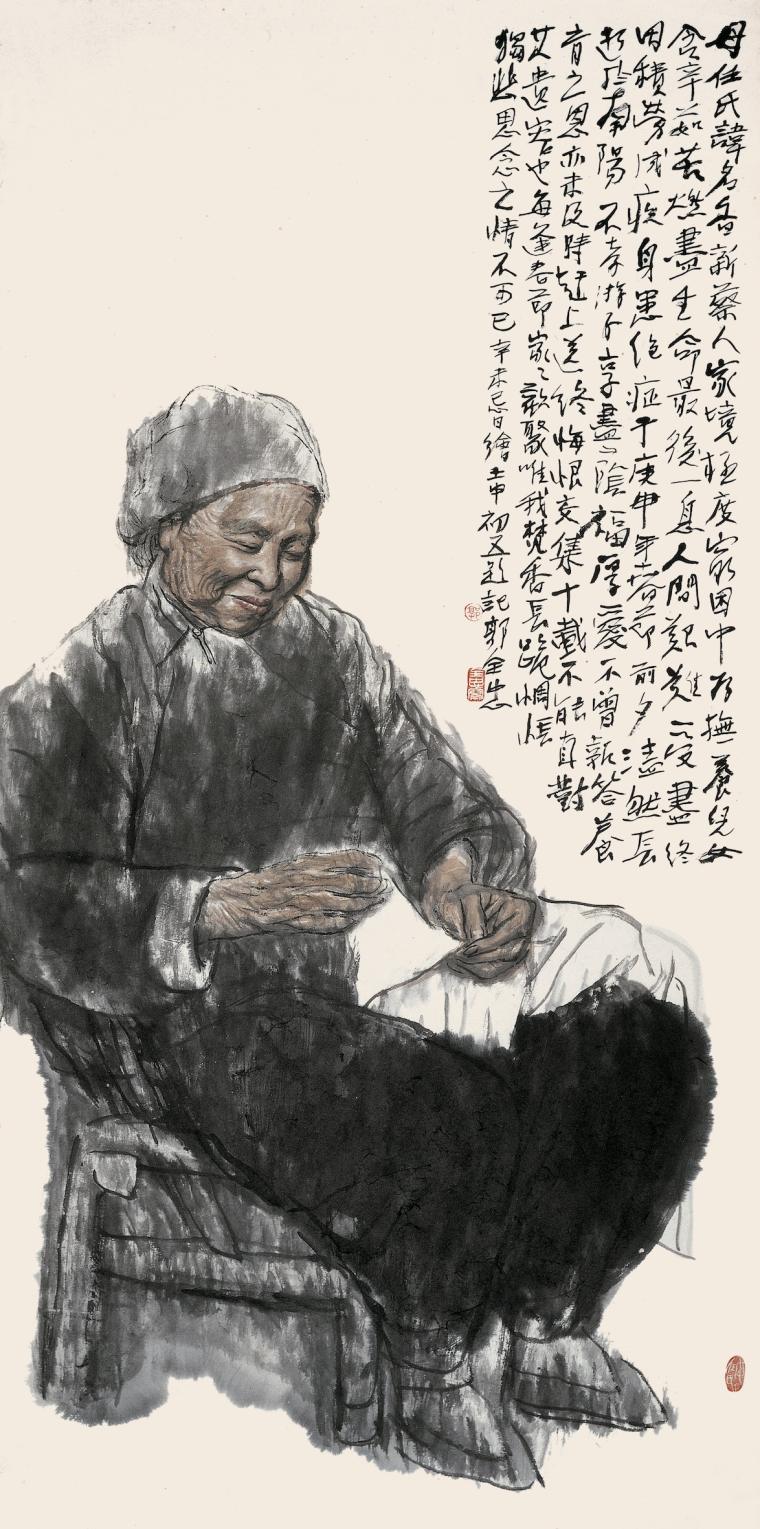 母任氏諱名香新蔡人家境極度窮困中為撫養兒女
含辛茹苦燃盡生命最後一息人間艱難受盡終
因積勞成疾身患絕症于庚申年春節前夕溘然長
逝於南陽不孝游子享盡陰福厚愛不曾報答養
育之恩亦未及時趕上送終悔恨交集十載不能自對
遺容也每逢春節家々歡聚唯我焚香長跪惆悵
獨悲思念之情不可已辛未忌日繪壬申初五題記郭全忠